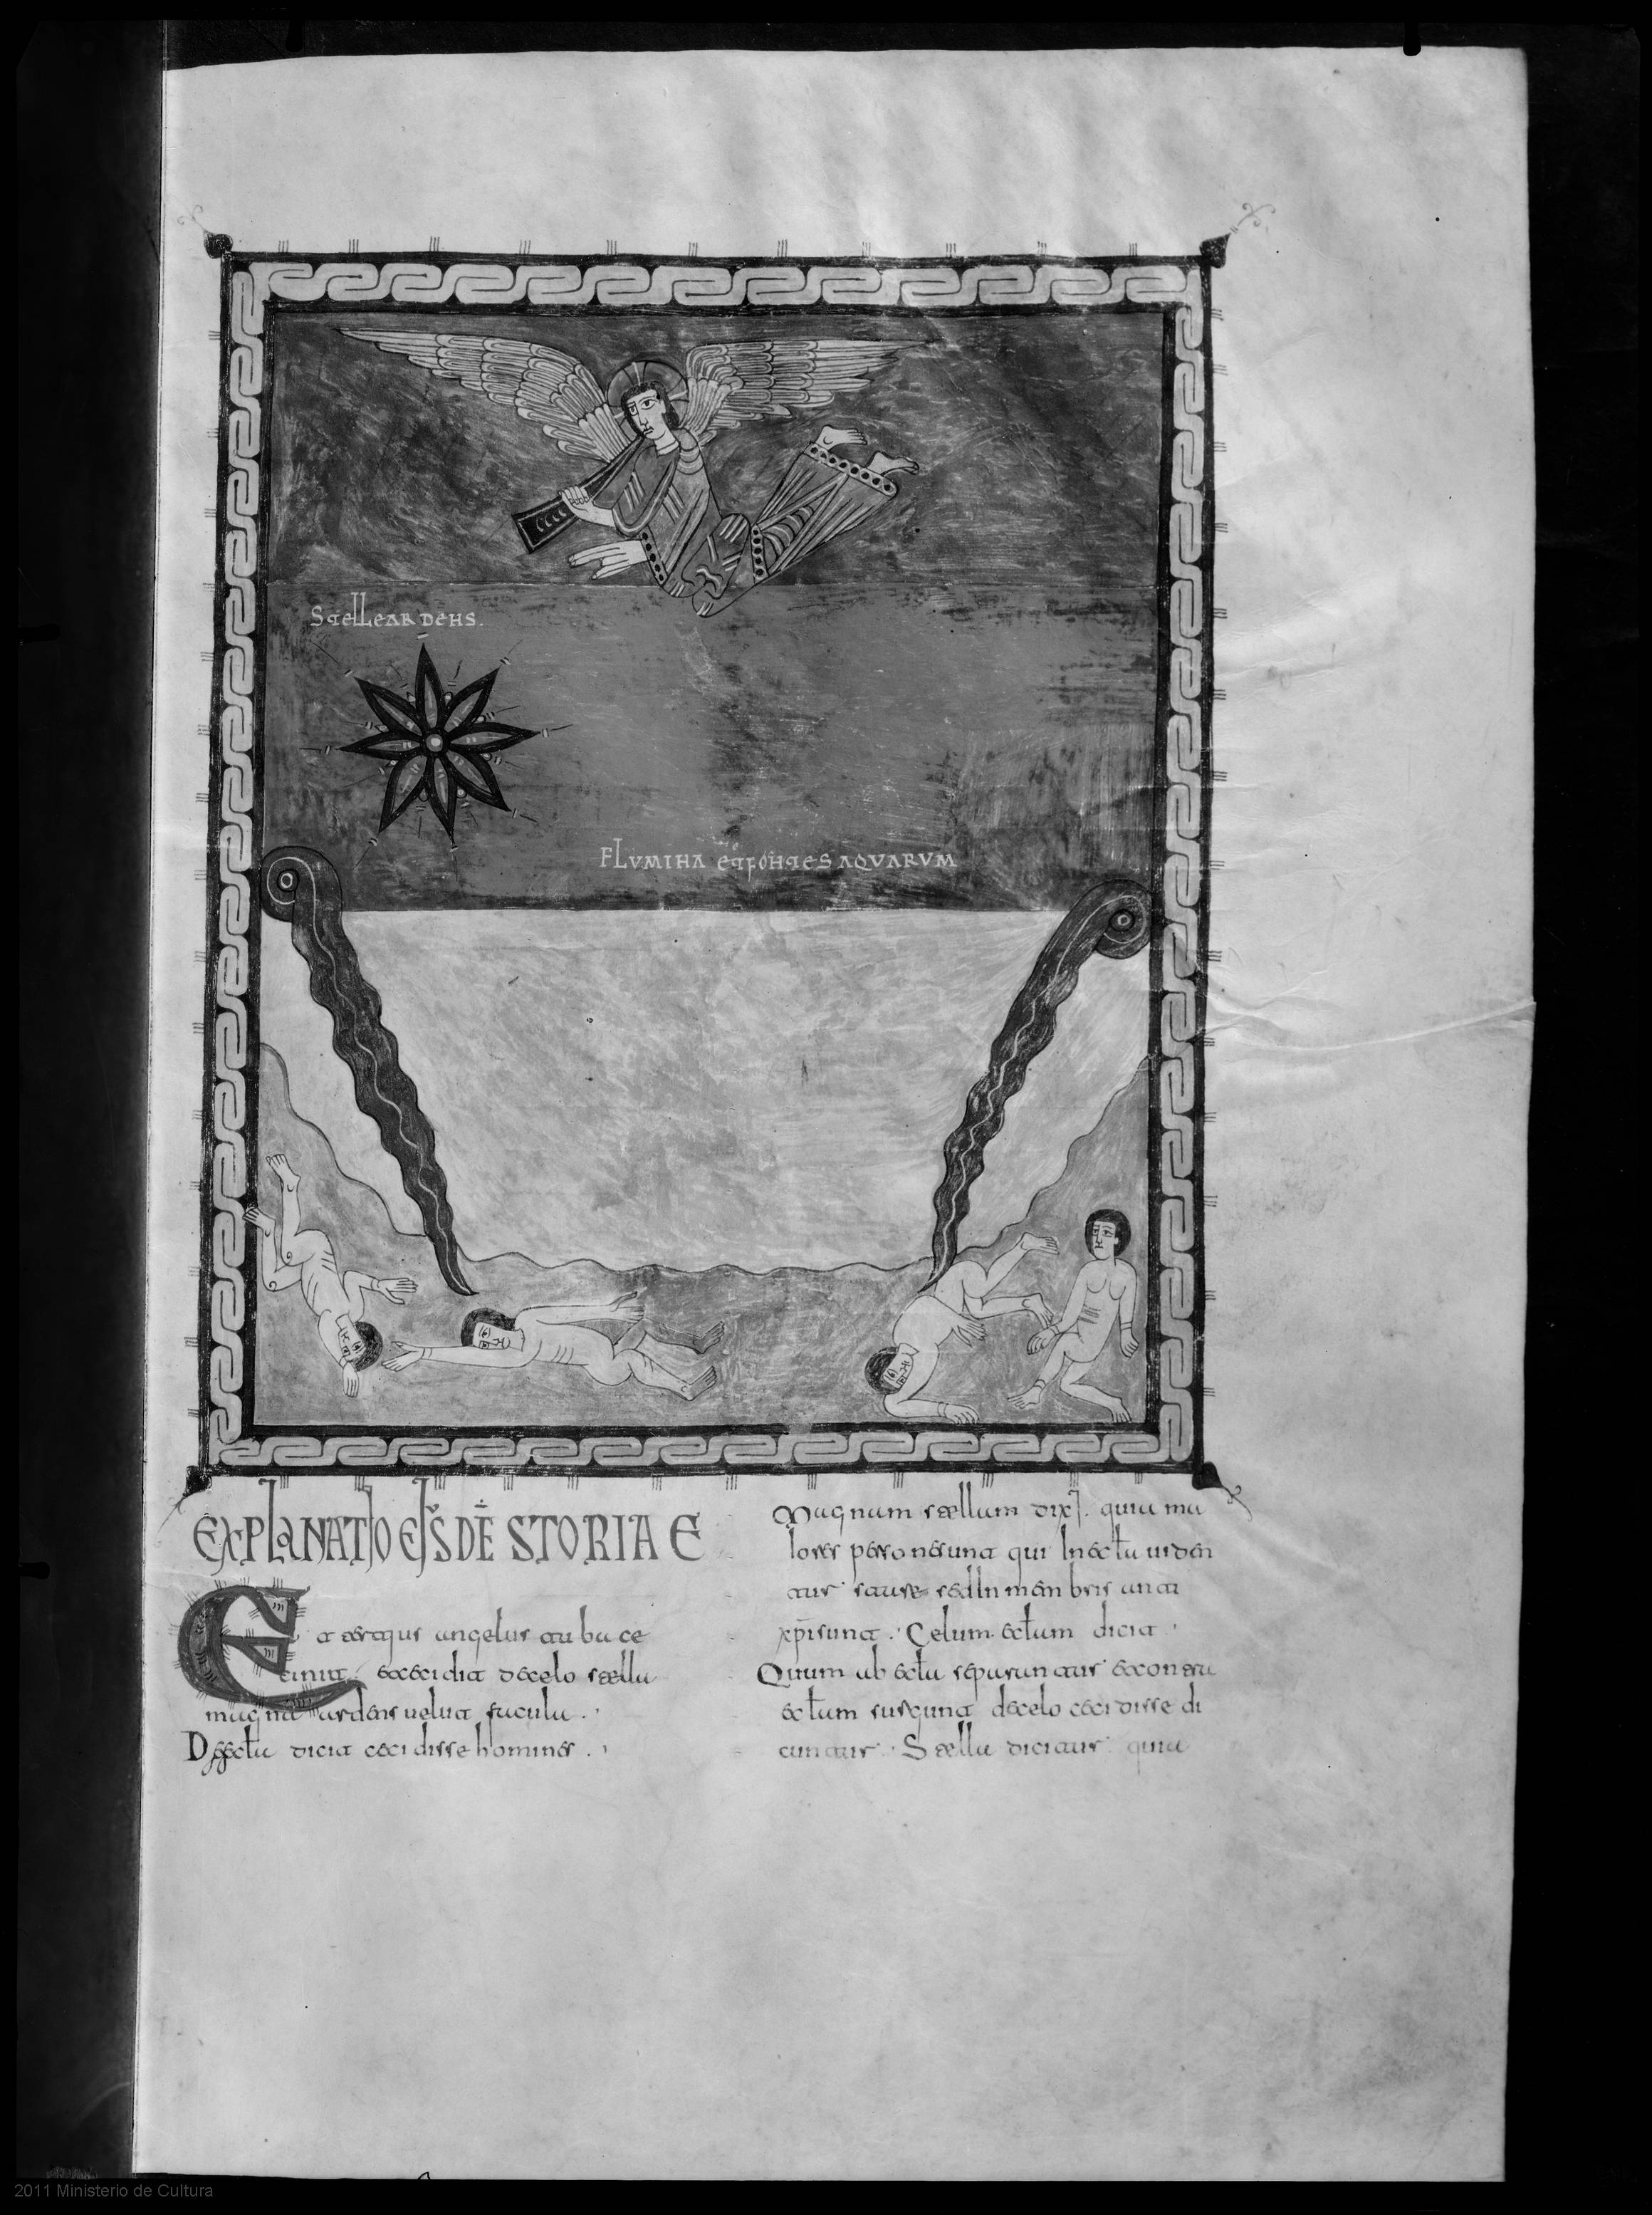 Stelle ardens.
Flumina et fontes aquarum
EXPLANATIO EJS DE STORIAE
Et tertius angelus tuba ce
cinit. et cecidit de celo stella
magna ardens uelut facula.
De eccla dicit cecidisse homines.
Magnam stellam dixt. quia ma
iores persone sunt qui in eccla uiden
tur stare sed in menbris anti
xpi sunt. Celum ecclam dicit.
Quum ab eccla separantur et contra
ecclam surgunt de celo cecidisse di
cuntur. Stella dicitur quia
2011 Ministerio de Cultura